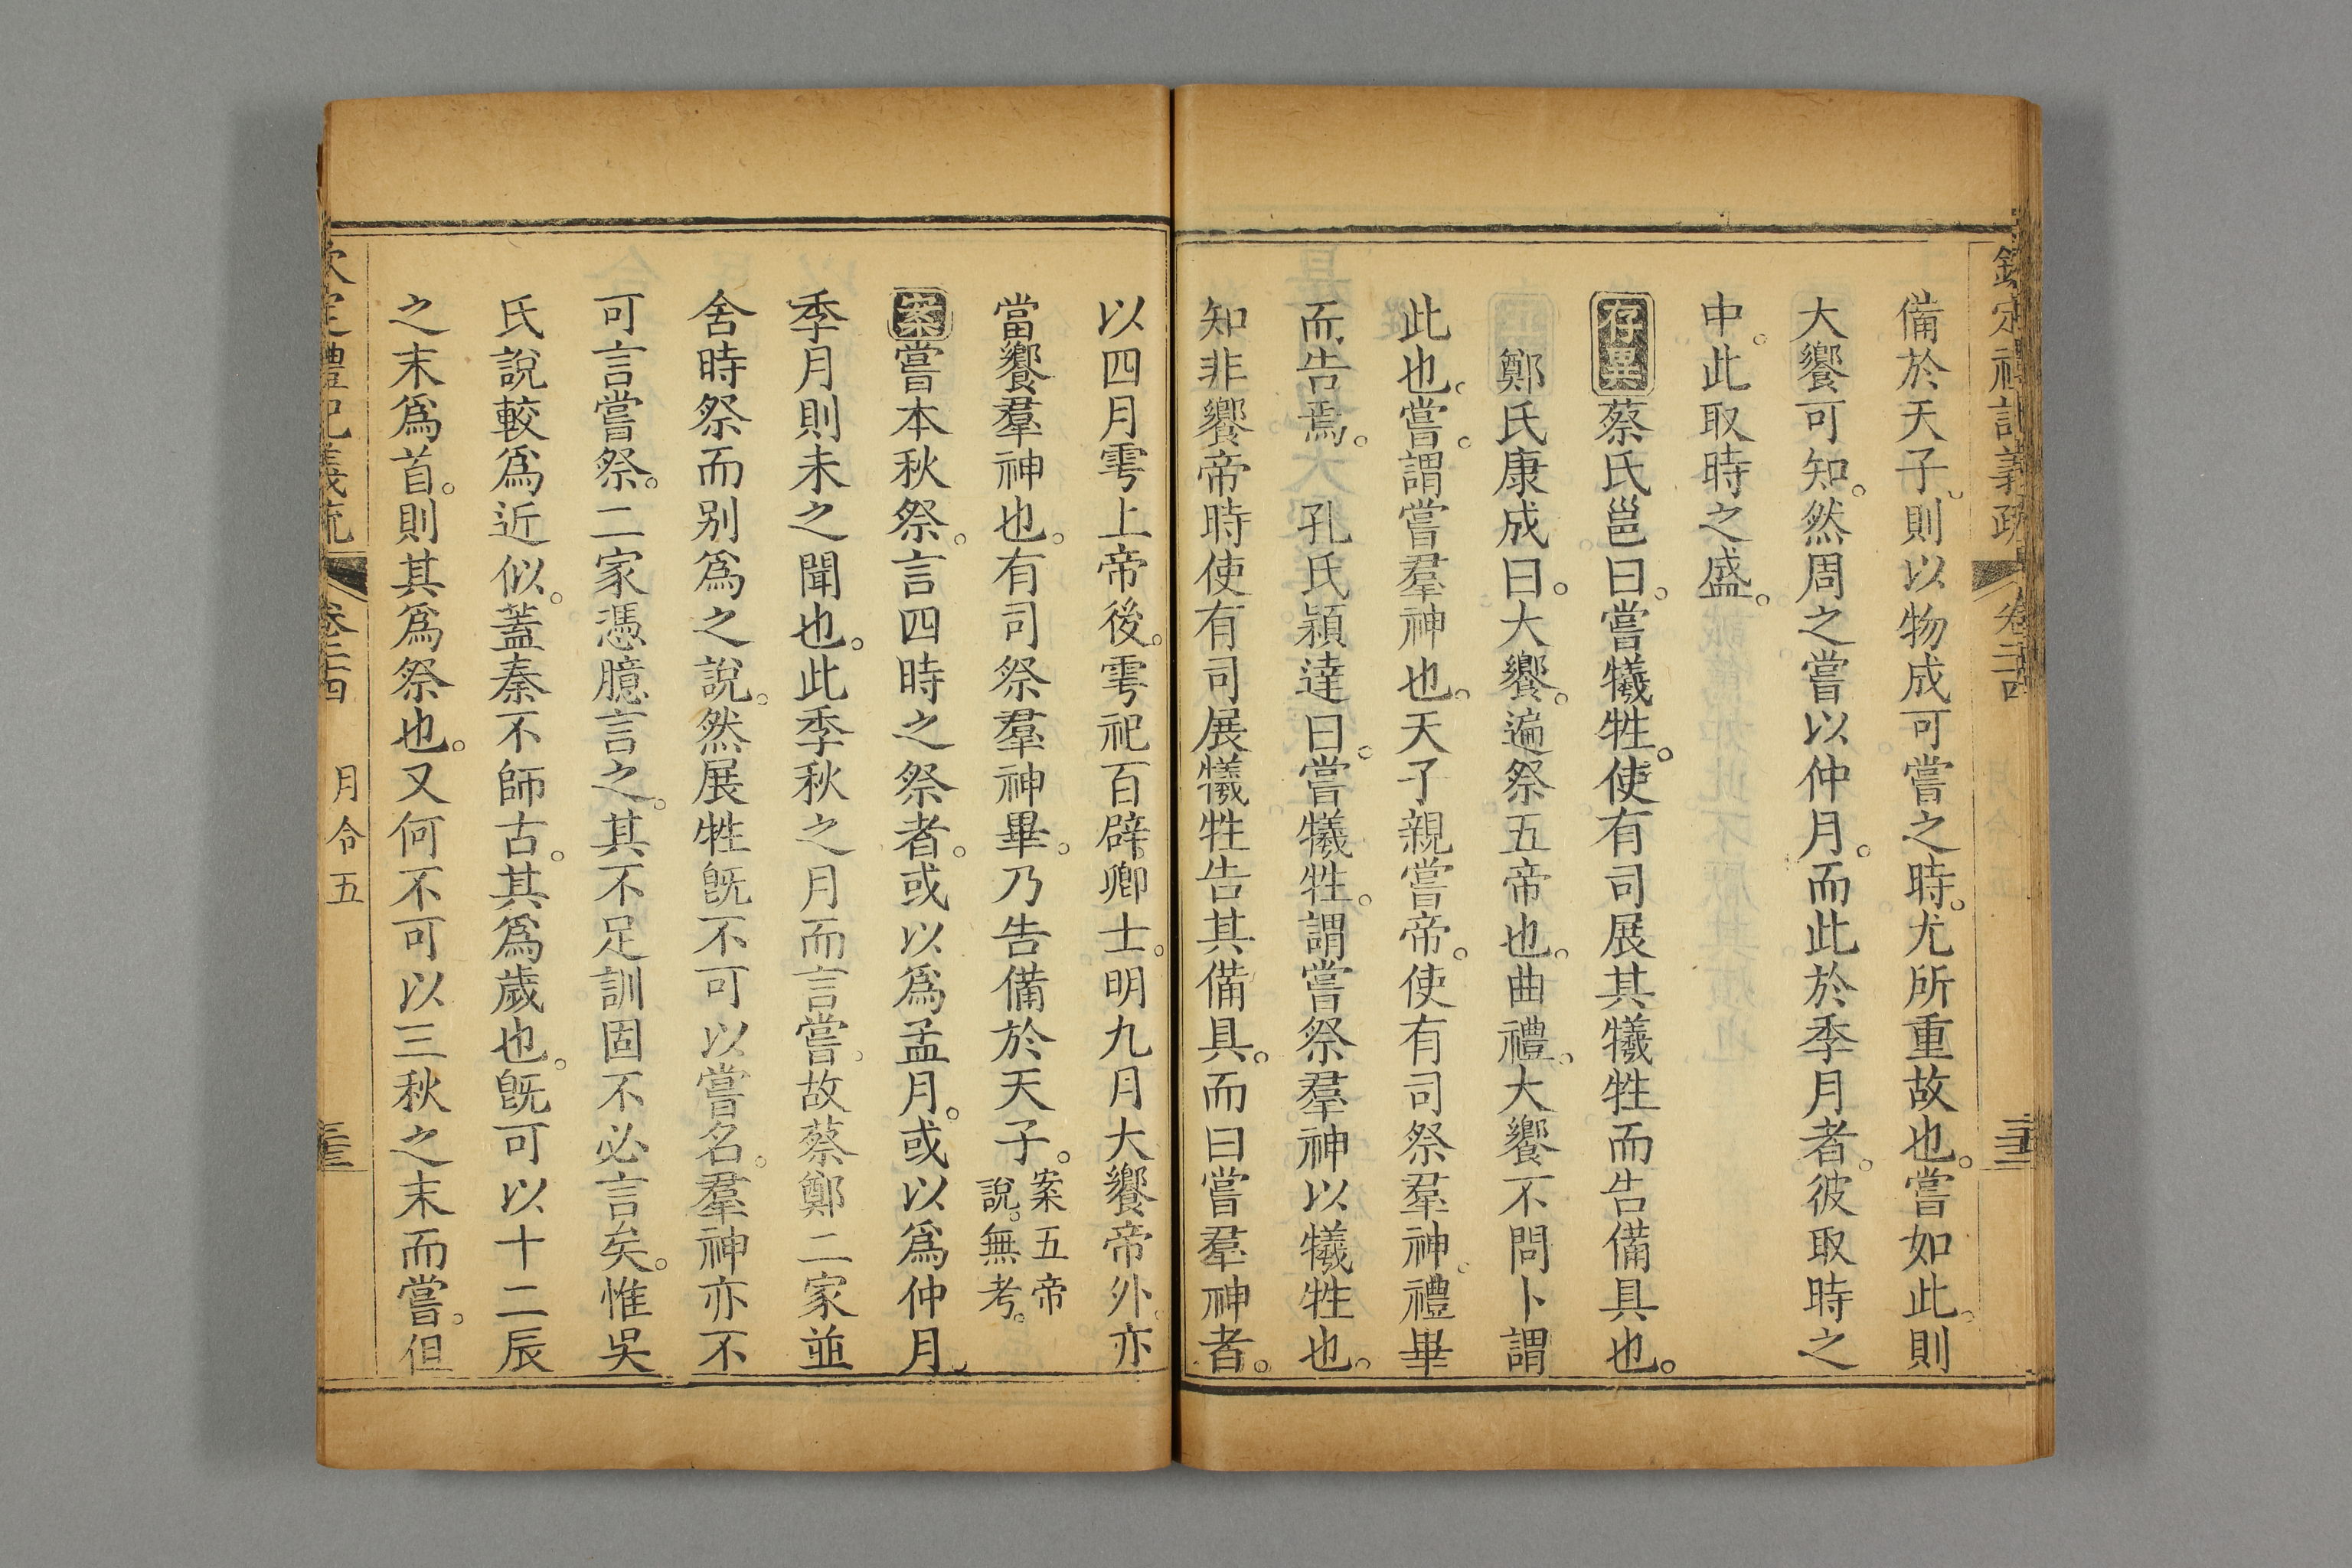 欽定禮記義疏 卷二十四
備於天子則以物成可嘗之時。尤所重故也。嘗如此。則
大饗可知。然周之嘗以仲月。而此於季月者。彼取時之
中。此取時之盛。
存異蔡氏邕曰。嘗犧牲。使有司展其犧牲而告備具也。
鄭氏康成曰。大饗。遍祭五帝也。曲禮。大饗不問卜謂
此也。嘗。謂嘗羣神也。天子親嘗帝。使有司祭羣神。禮畢
而告焉。 孔氏穎達曰。嘗犧牲。謂嘗祭羣神以犧牲也。
知非饗帝時使有司展犧牲告其備具。而曰嘗羣神者。
以四月雩上帝後。雩祀百辟卿士。明九月大饗帝外。亦
當饗羣神也。有司祭羣神畢。乃告備於天子。案五帝說。無考。
案嘗本秋祭。言四時之祭者。或以爲孟月。或以爲仲月。
季月則未之聞也。此季秋之月而言嘗。故蔡鄭二家並
舍時祭而别爲之說。然展牲旣不可以嘗名。羣神亦不
可言嘗祭。二家憑臆言之。其不足訓固不必言矣。惟吳
氏說較爲近似。蓋秦不師古。其爲歲也。旣可以十二辰
之末爲首。則其爲祭也。又何不可以三秋之末而嘗。但
欽定禮記義疏 卷二十四 月令五